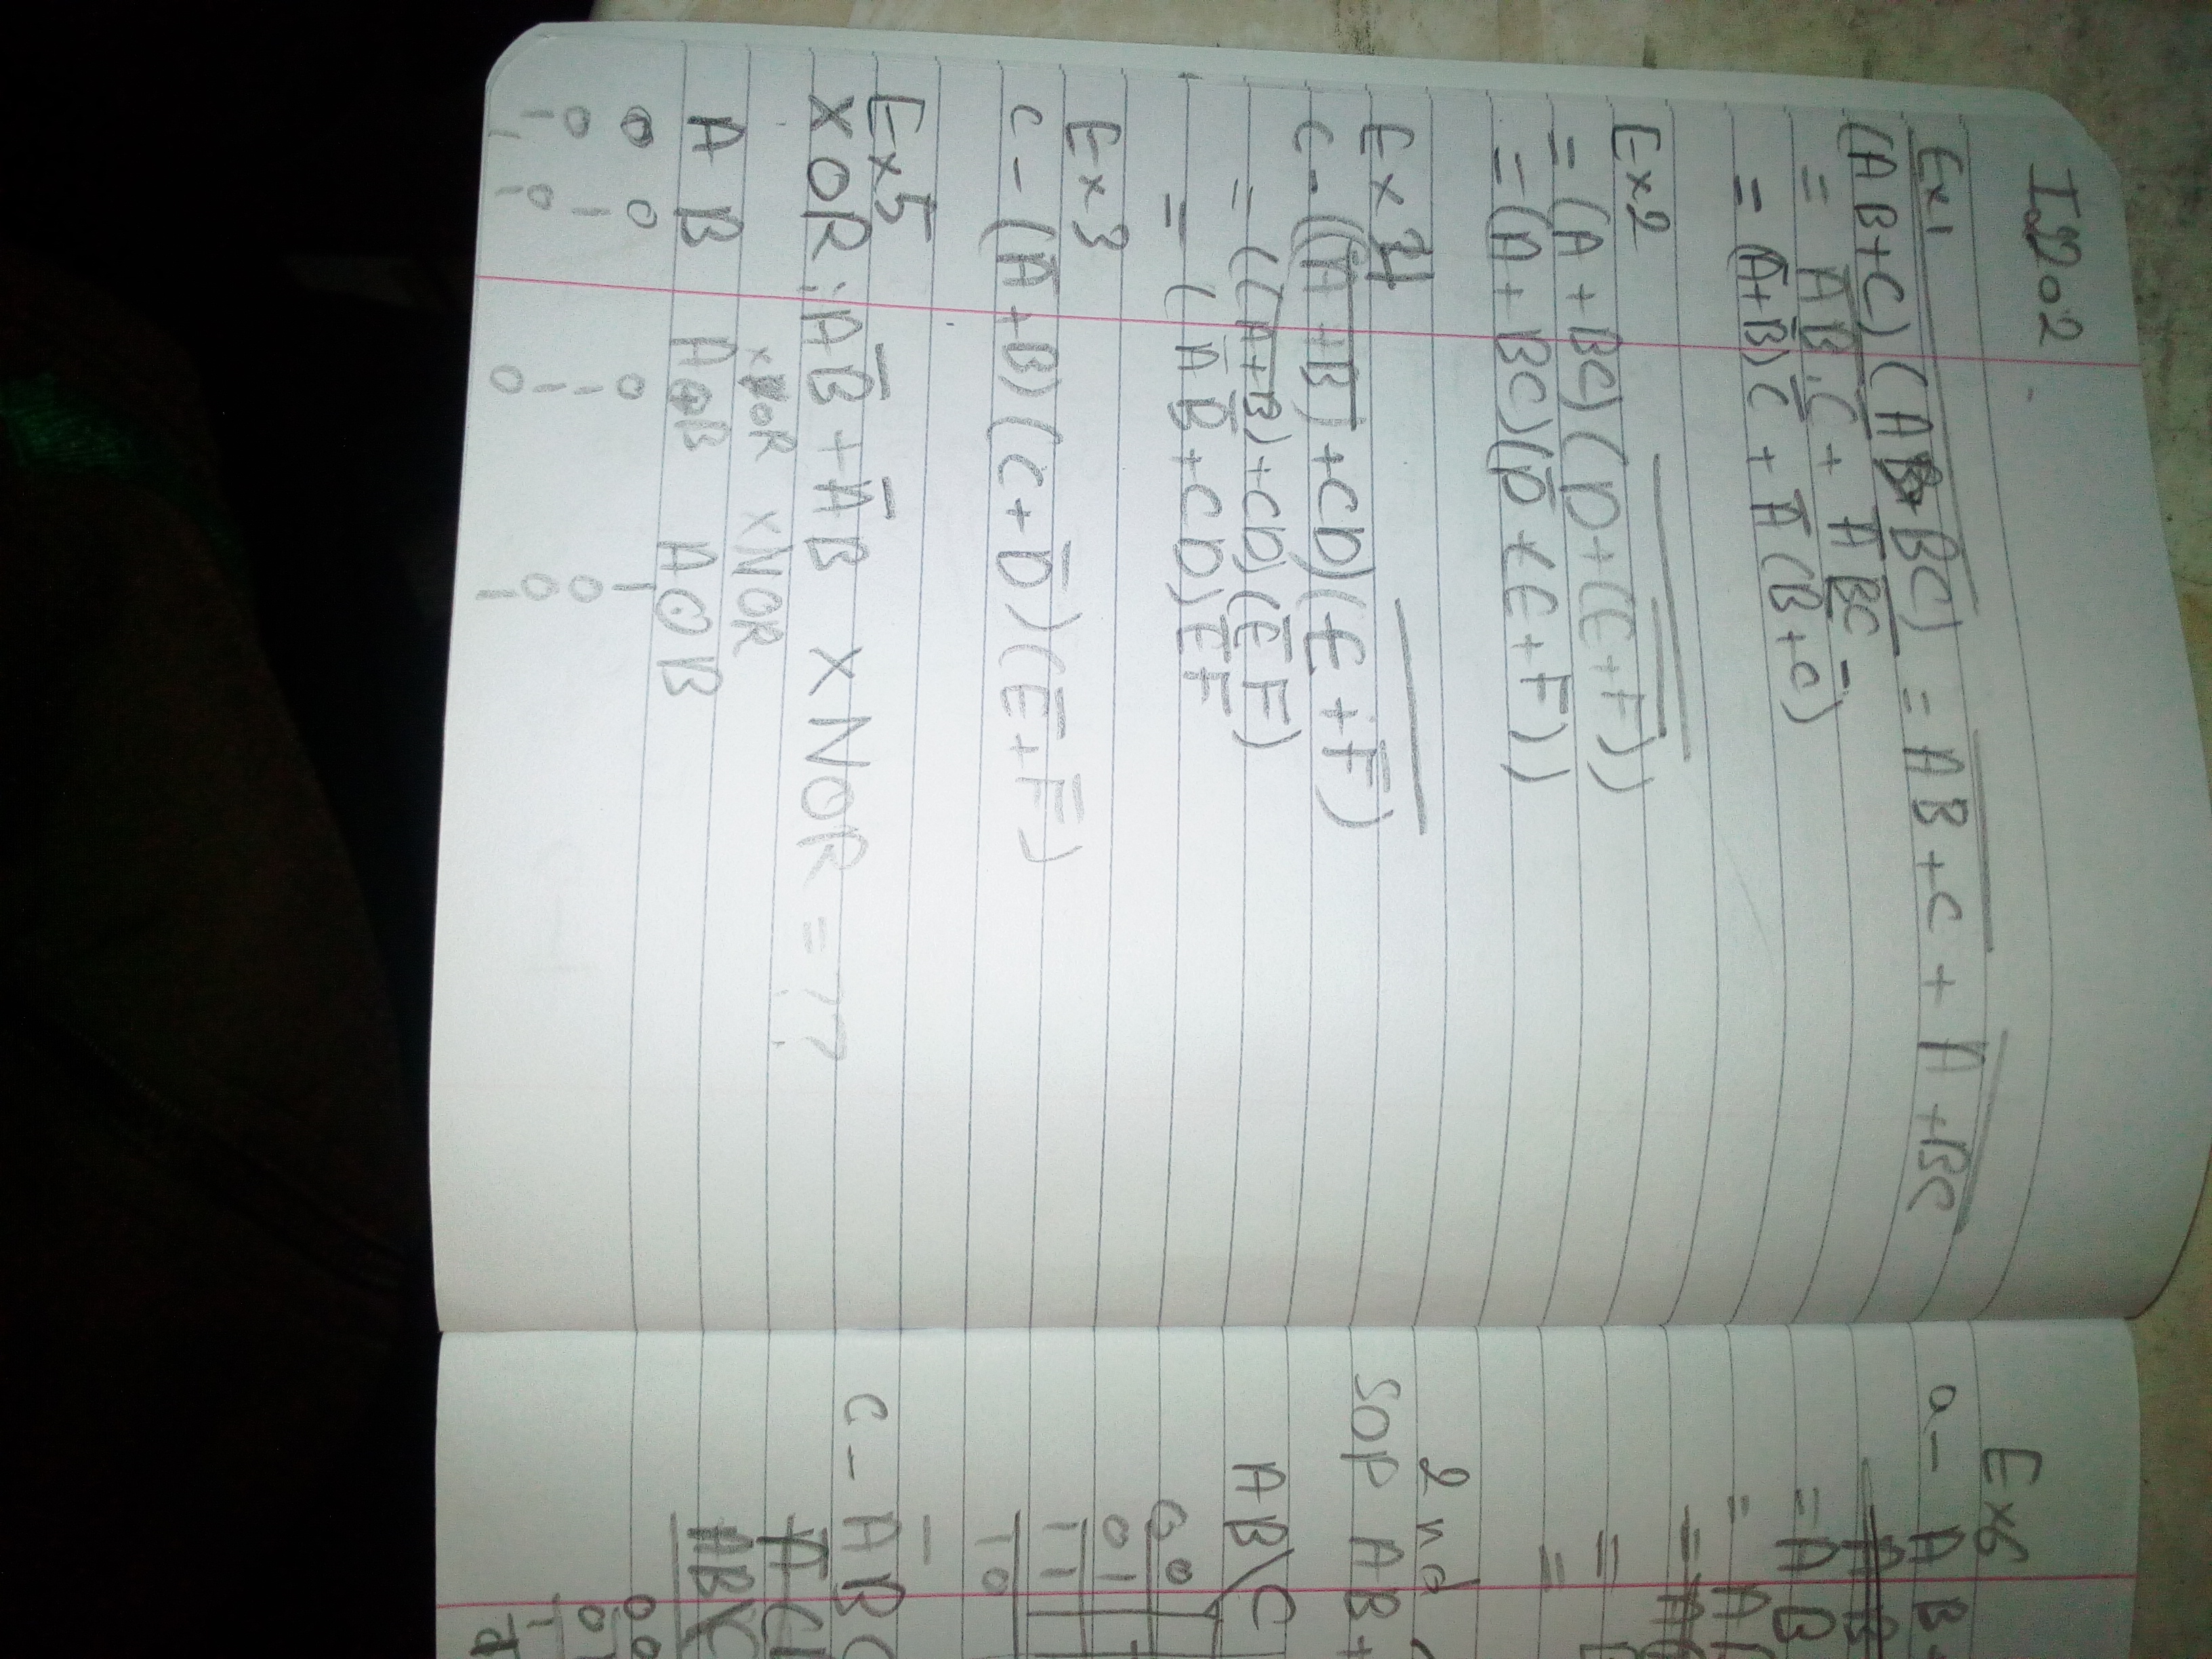 I2202
Ex1
(AB+C)(A+BC) = AB+C + A+BC
= AB.C̅ + A̅ BC
= (A̅+B̅)C̅ + A̅(B̅+C̅)
Ex2
= (A+BC)(D+(E+F))
= (A+BC)(D̅+(E+F))
Ex4
C - ((A+B)+CD)(E+F̅)
= ((A+B)+CD)(E̅ F)
= (A̅ B̅+CD)E̅F
Ex3
C - (A̅+B)(C+D̅)(E̅+F̅)
Ex5
XOR: AB̅+A̅B XNOR = ??
XOR XNOR
A B A⊕B A⊙B
0 0 0 1
0 1 1 0
1 0 1 0
1 1 0 1
Ex6
a - AB+
= AB
= A
=
=
2nd
SOP AB+
AB\C
00
01
11
10
C - A̅BC
AB\C
00
0
1